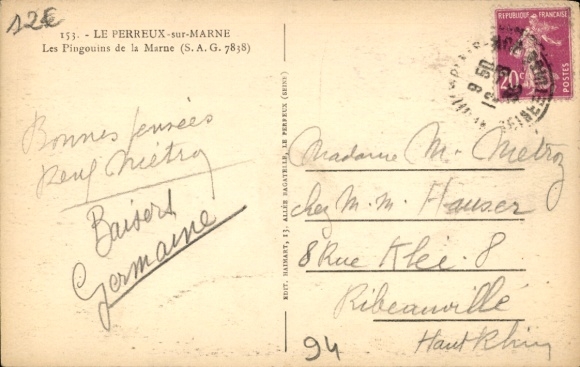 12€
153. - LE PERREUX-sur-MARNE
Les Pingouins de la Marne (S. A. G. 7838)
REPUBLIQUE FRANÇAISE
20c
POSTES
Bonnes pensées
Métroz
Baisers
Germaine
EDIT. HAIMART, 13, ALLÉE BAGATELLE, LE PERREUX (SEINE)
Madame M. Metroz
chez M. M. Hauser
8 Rue Klée. 8
Ribeauvillé
Haut Rhin
94